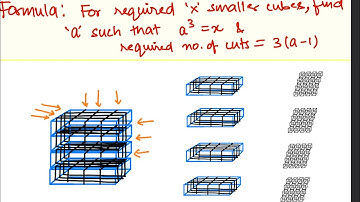 Formula: For required 'x' smaller cubes, find
'a' such that a³ = x &
required no. of cuts = 3(a-1)